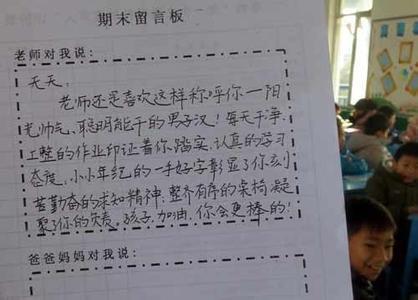 期末留言板
老师对我说:
天天:
老师还是喜欢这样称呼你—阳
光帅气、聪明能干的男子汉!每天干净、
工整的作业印证着你踏实、认真的学习
态度,小小年纪的一手好字彰显了你刻
苦勤奋的求知精神,整齐有序的桌椅凝
聚了你的责任,孩子,加油,你会更棒的!
爸爸妈妈对我说: